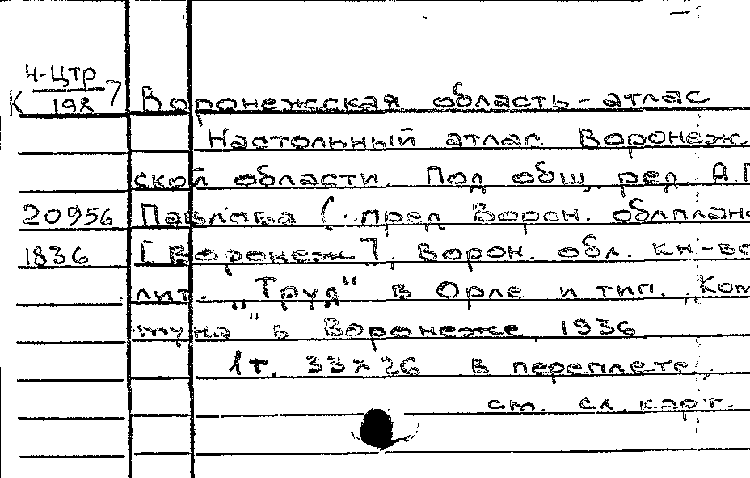 Ч-Цтр
К 198 7 Воронежская область - атлас
Настольный атлас Воронеж
ской области. Под общ. ред. А.П
20956 Павлова (: пред Ворон. облплана
1836 [Воронеж], Ворон. обл. кн-во
лит. „Труд" в Орле и тип. „Ком
муна" в Воронеже, 1936
1т. 33×26 в переплете.
см. сл. карт.